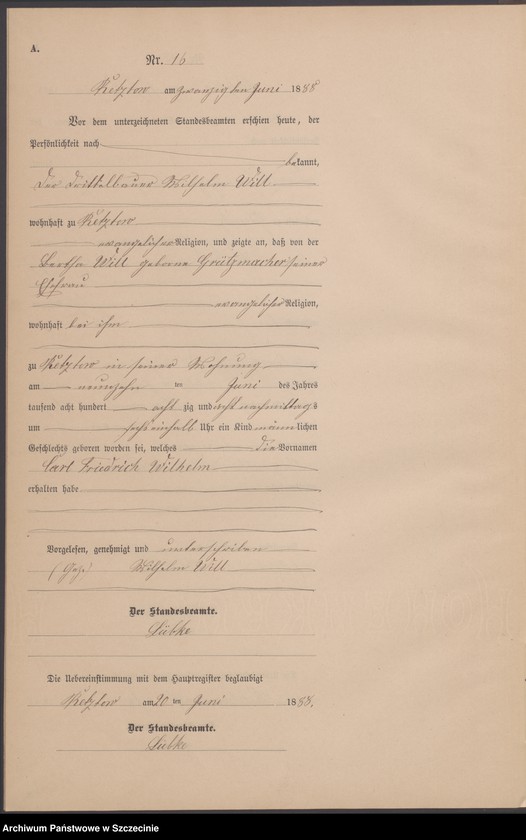 A.
Nr. 16
Kützow am zwanzigsten Juni 1888
Vor dem unterzeichneten Standesbeamten erschien heute, der
Persönlichkeit nach
bekannt,
der Drittelbauer Wilhelm Will
wohnhaft zu
evangelischer Religion, und zeigte an, daß von der
Bertha Will geborne Grützmacher seiner
Ehefrau
evangelischer Religion,
wohnhaft bei ihm
zu in seiner Wohnung
am neunzehn ten Juni des Jahres
tausend acht hundert acht zig und acht nachmittags
um Uhr ein Kind männlichen
Geschlechts geboren worden sei, welches die Vornamen
Carl Friedrich Wilhelm
erhalten habe
Vorgelesen, genehmigt und unterschrieben
(Gez.) Wilhelm Will
Der Standesbeamte.
Lübke
Die Uebereinstimmung mit dem Hauptregister beglaubigt
am 20 ten Juni 1888.
Der Standesbeamte.
Lübke
Archiwum Państwowe w Szczecinie